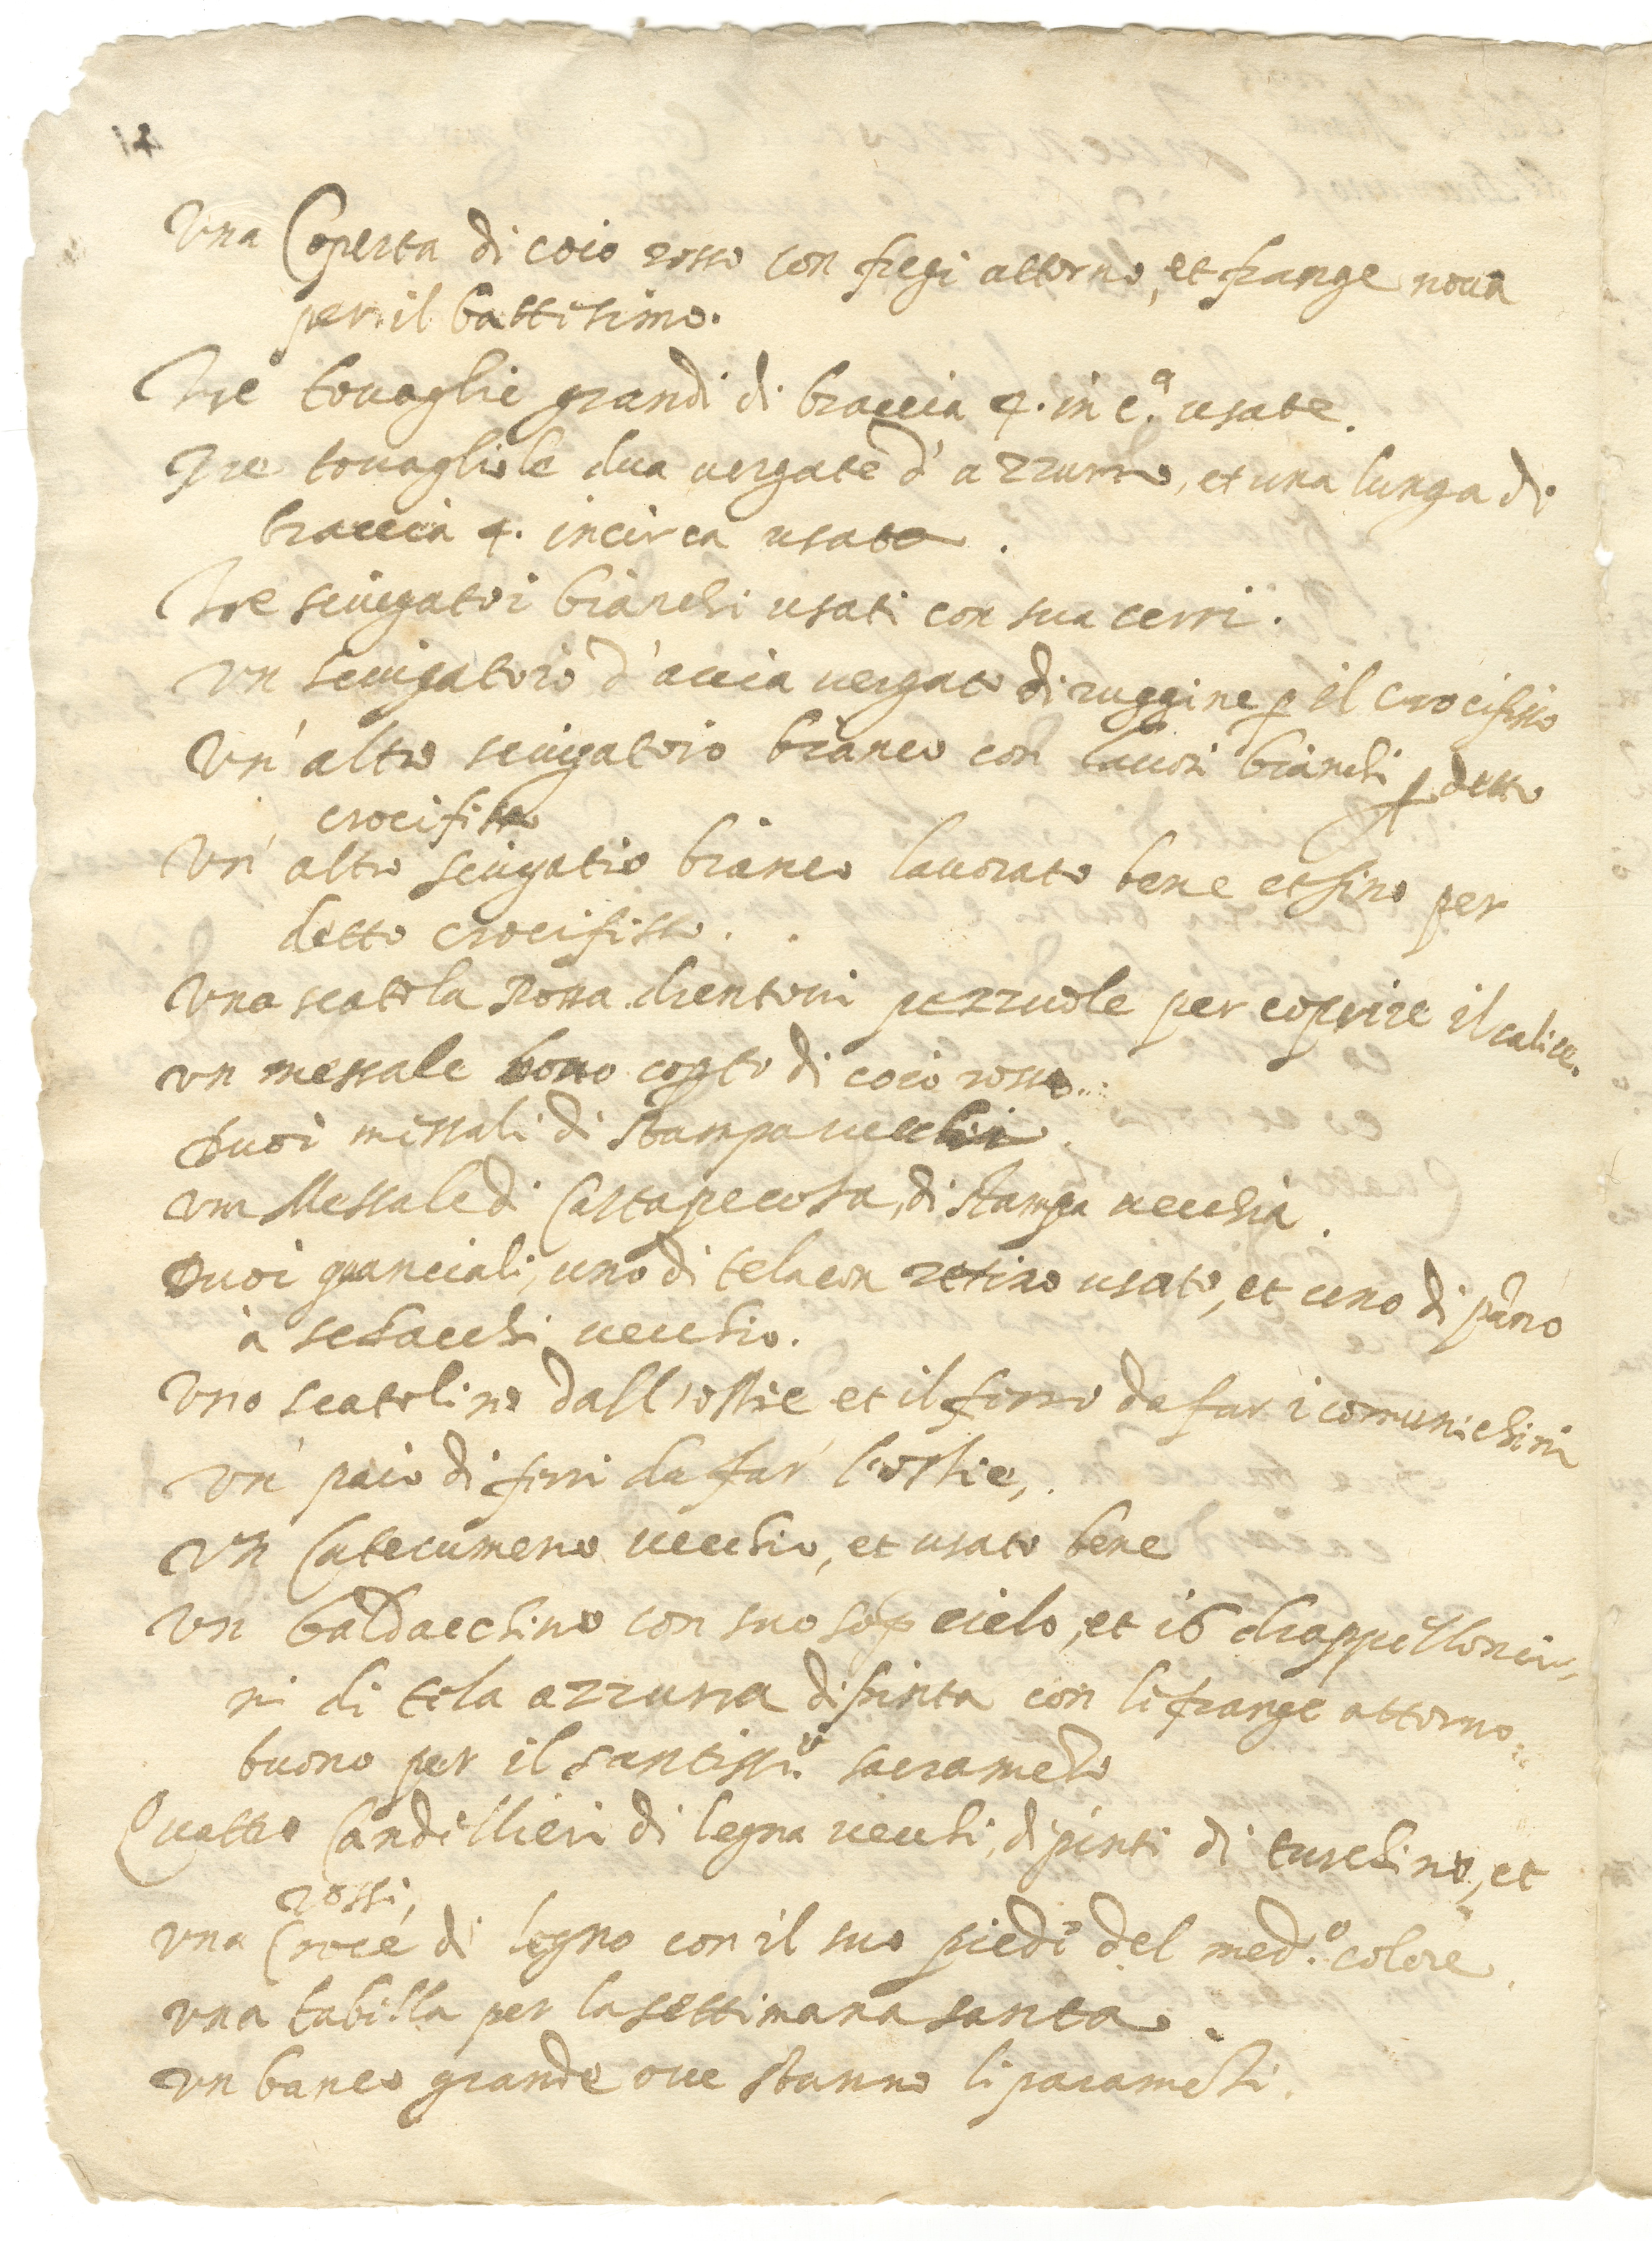 Una Coperta di coio rosso con fregi attorno, et frange noua
per il battesimo.
Tre touaglie grandi di braccia 4. in c.ª usate.
Tre touagliole dua uergate d'azzurro, et una lunga di
braccia 4. incirca usate.
Tre sciugatoi bianchi usati con sua cerri.
Un sciugatoio d'accia uergato di ruggine p il crocifisso
Un' altro sciugatoio bianco con lauori bianchi p detto
crocifisso
Un' altro sciugatoio bianco lauorato bene et fino per
detto crocifisso.
Una scatola rossa drentoui pezzuole per coprire il calice.
Un messale bono copto di coio rosso.
Duoi missali di stampa uecchi
Un Messale di Cartapecora, di stampa uecchia.
Duoi guanciali, uno di tela con retino usato, et uno di pano
à uecchio.
Uno scatolino dall'ostie et il ferro da far i comunichini
Un paio di ferri da far l'ostie,
Un Catecumeno uecchio, et usato bene
Un baldacchino con suo sop cielo, et 16 drappelloncin,
ni di tela azzurra dipinta con le frange attorno
buono per il santiss.º sacrameto
Quattro Candellieri di legna uecchi, dipinti di turchino, et
rossi,
Una Croce di legno con il suo piede del med.º colore.
Una tabella per la settimana santa.
Un banco grande oue stanno li parameti.